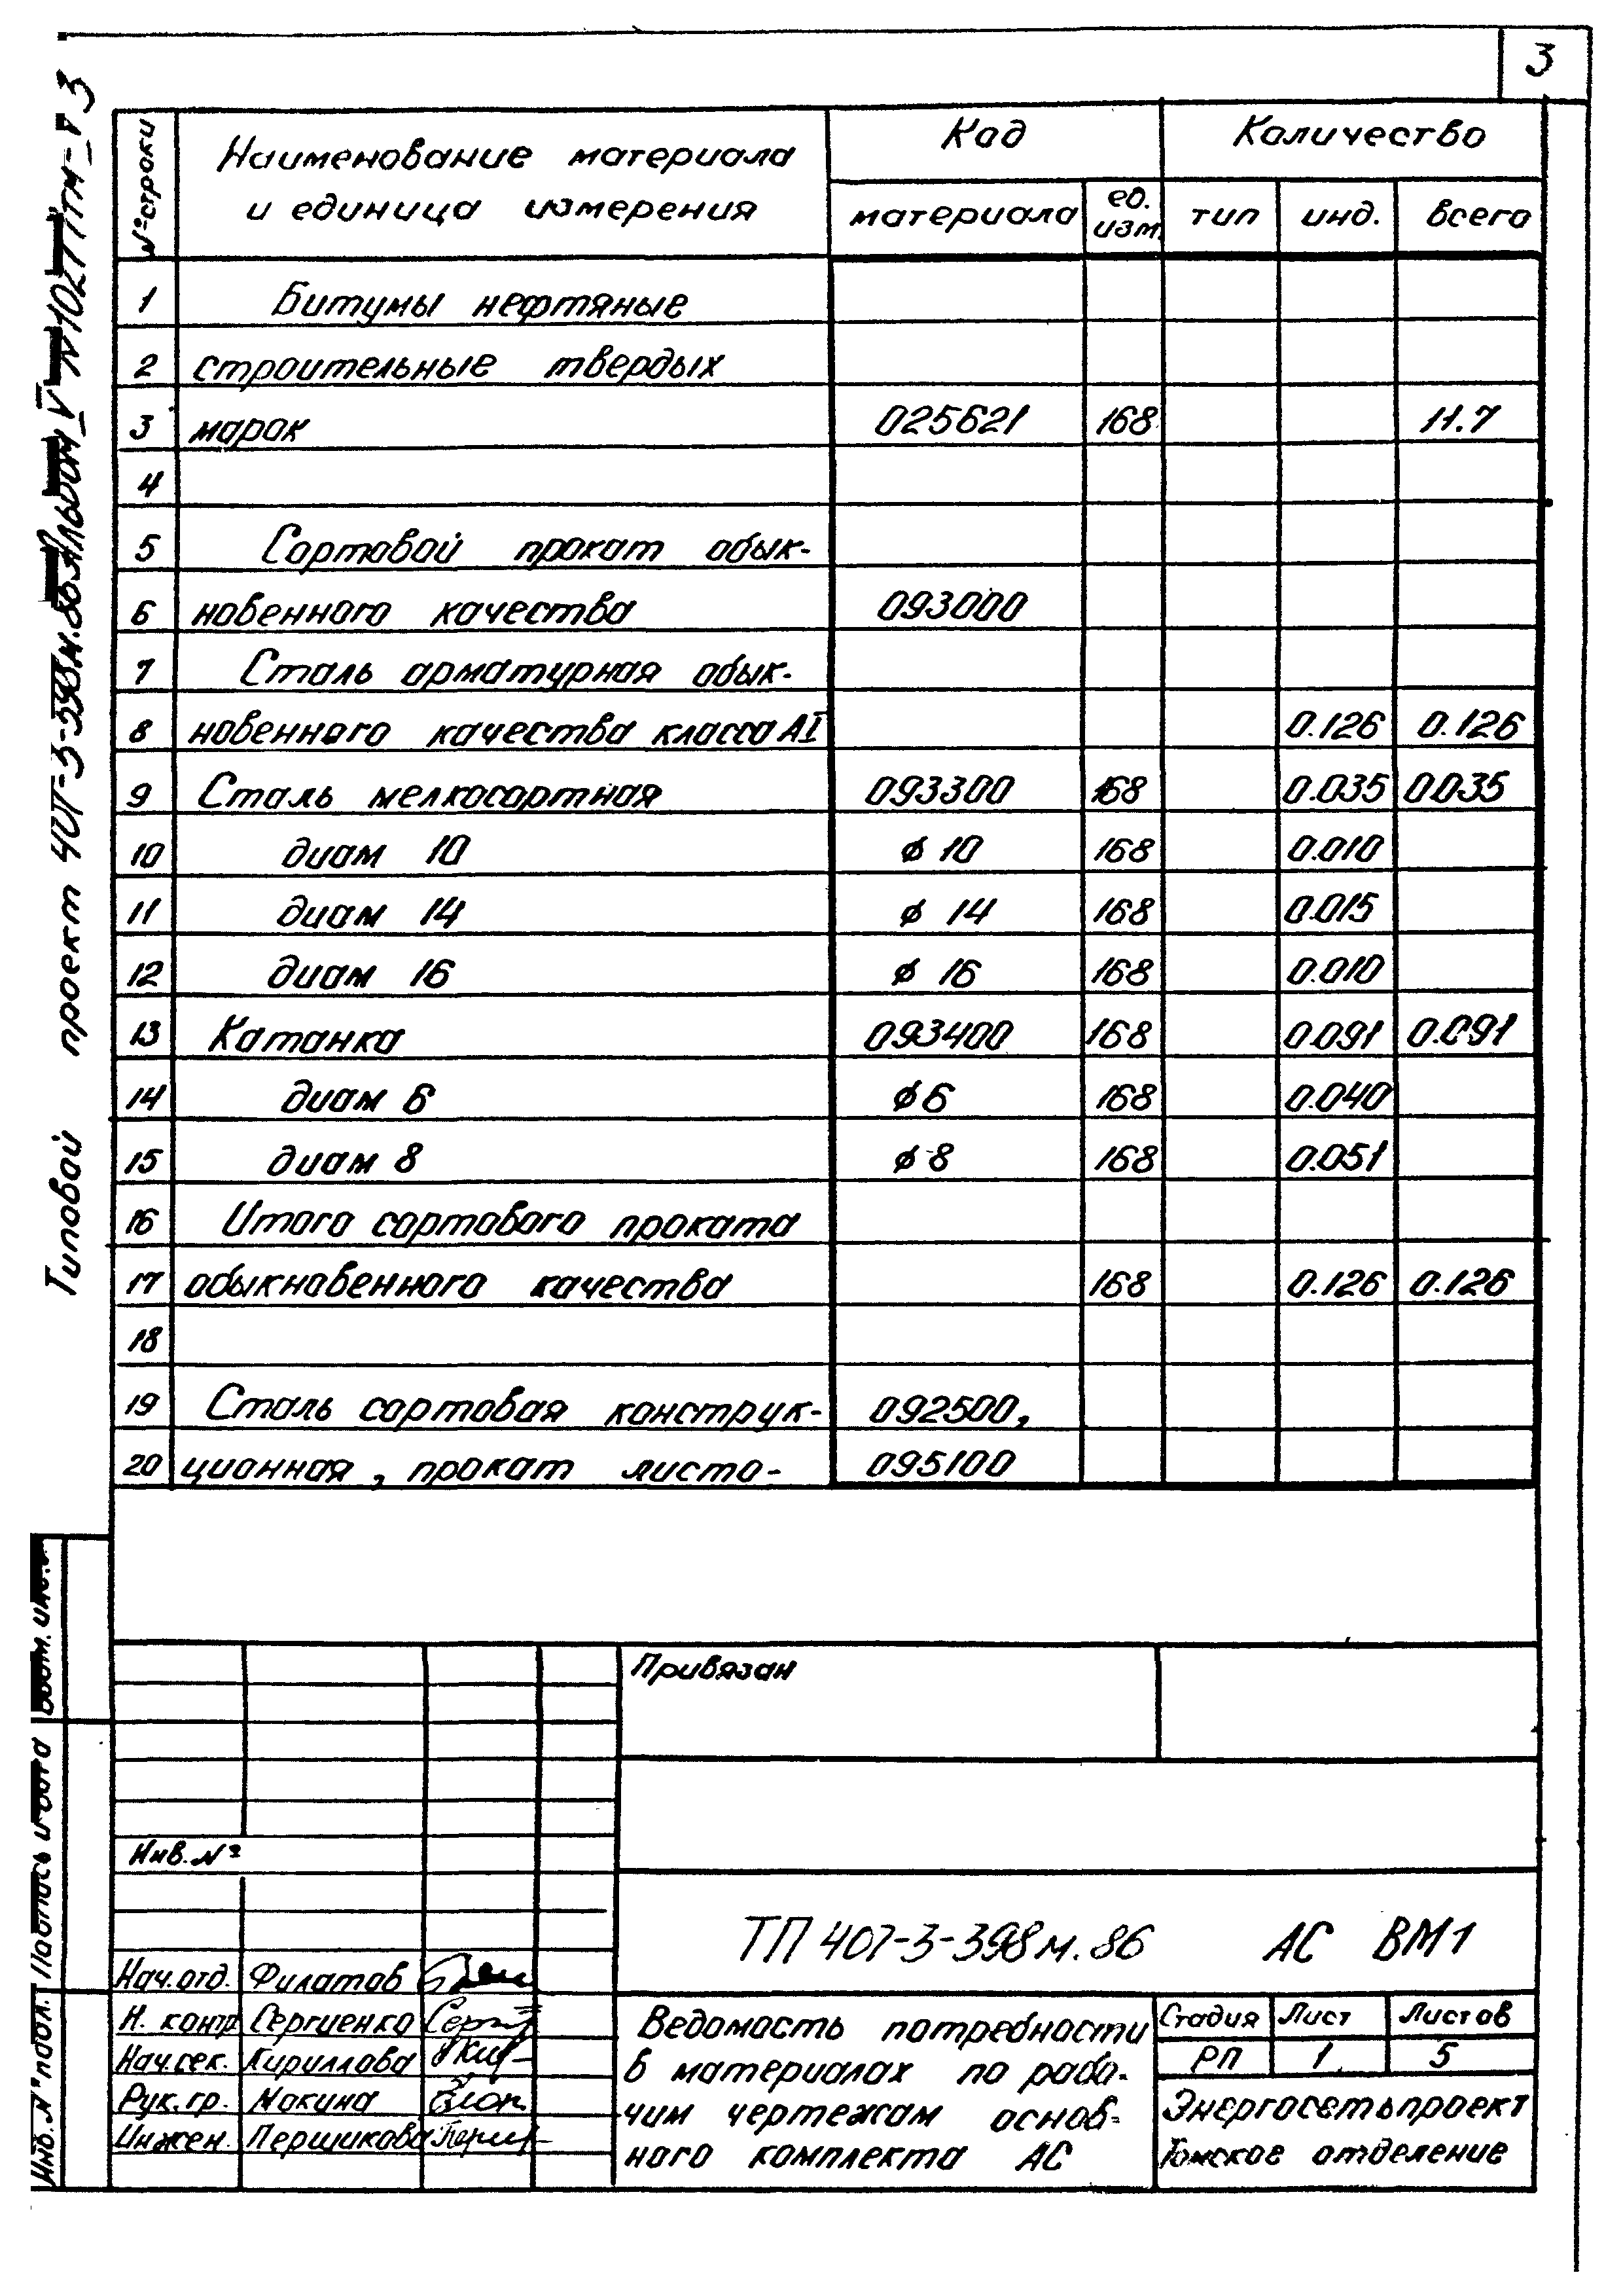 3
№ строки
Наименование материала
и единица измерения
Код
Количество
материала
ед.
изм.
тип
инд.
всего
1 Битумы нефтяные
2 строительные твердых
3 марок 025621 168 11.7
4
5 Сортовой прокат обык-
6 новенного качества 093000
7 Сталь арматурная обык-
8 новенного качества класса АI 0.126 0.126
9 Сталь мелкосортная 093300 168 0.035 0.035
10 диам 10 ⌀ 10 168 0.010
11 диам 14 ⌀ 14 168 0.015
12 диам 16 ⌀ 16 168 0.010
13 Катанка 093400 168 0.091 0.091
14 диам 6 ⌀ 6 168 0.040
15 диам 8 ⌀ 8 168 0.051
16 Итого сортового проката
17 обыкновенного качества 168 0.126 0.126
18
19 Сталь сортовая конструк- 092500,
20 ционная, прокат листо- 095100
Типовой проект 407-3-398м.86 Альбом V
Привязан
Инв. №
ТП 407-3-398м.86 АС ВМ1
Нач.отд. Филатов
Н. контр Сергиенко
Нач.сек. Кириллова
Рук. гр. Мокина
Инжен. Перщикова
Ведомость потребности
в материалах по рабо-
чим чертежам основ-
ного комплекта АС
Стадия Лист Листов
РП 1 5
Энергосетьпроект
Томское отделение
Инв. № подл. Подпись и дата Взам. инв.